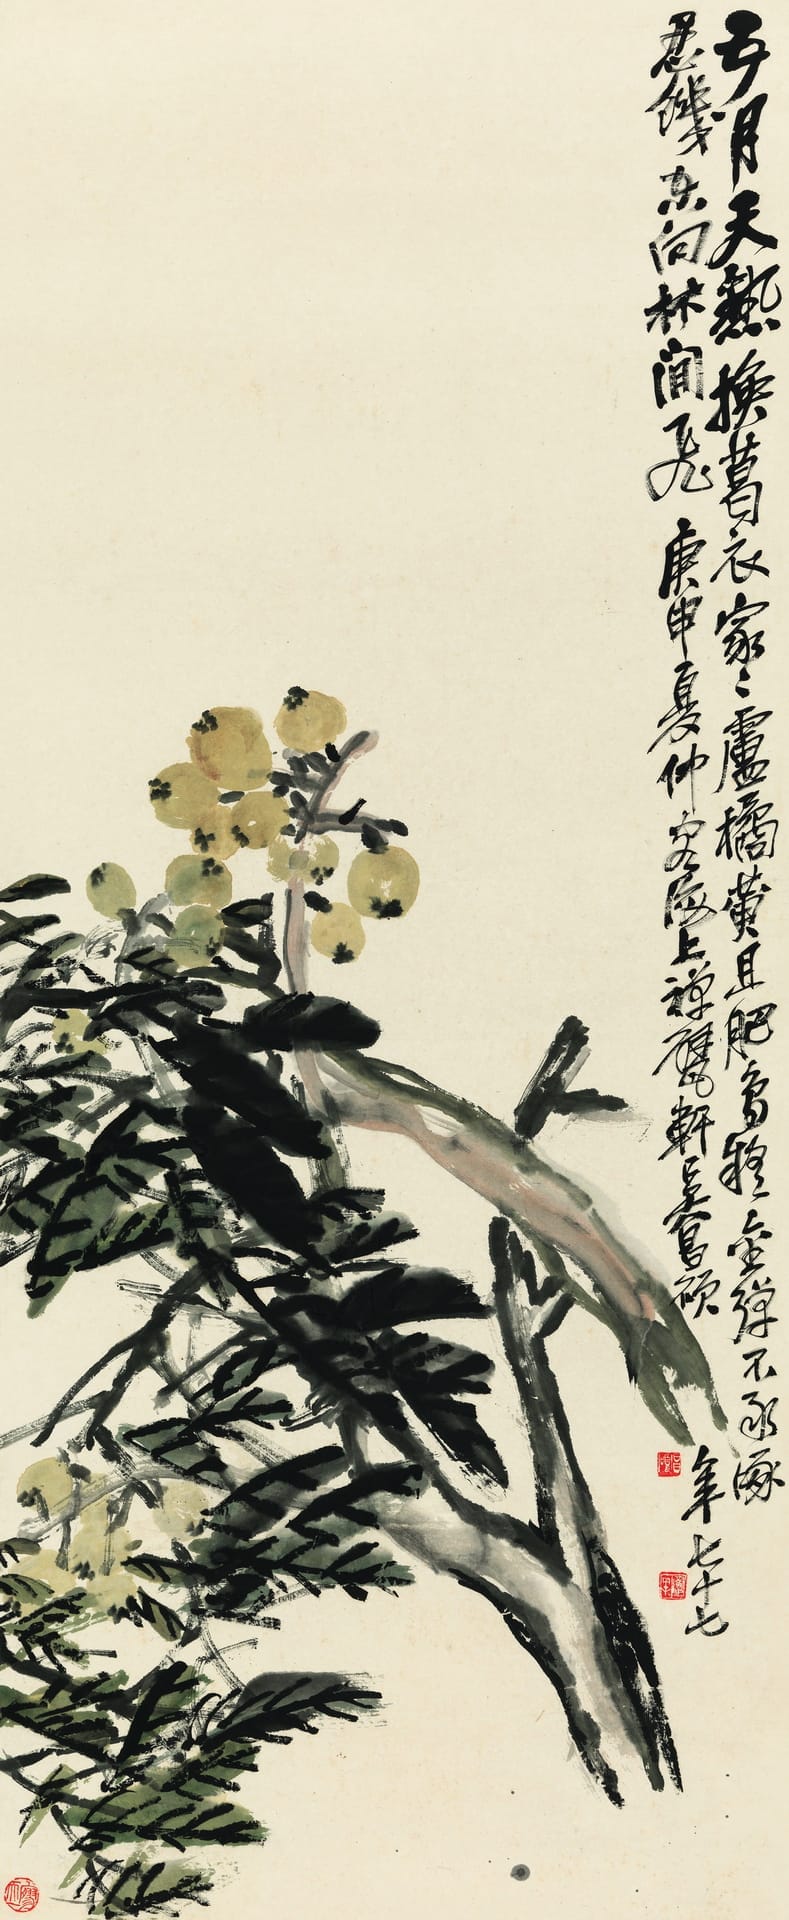 五月天熱換葛衣家〻盧橘黃且肥鳥疑金彈不敢啄
忍饑空向林間飛 庚申夏仲客滬上禪甓軒吳昌碩
年七十七